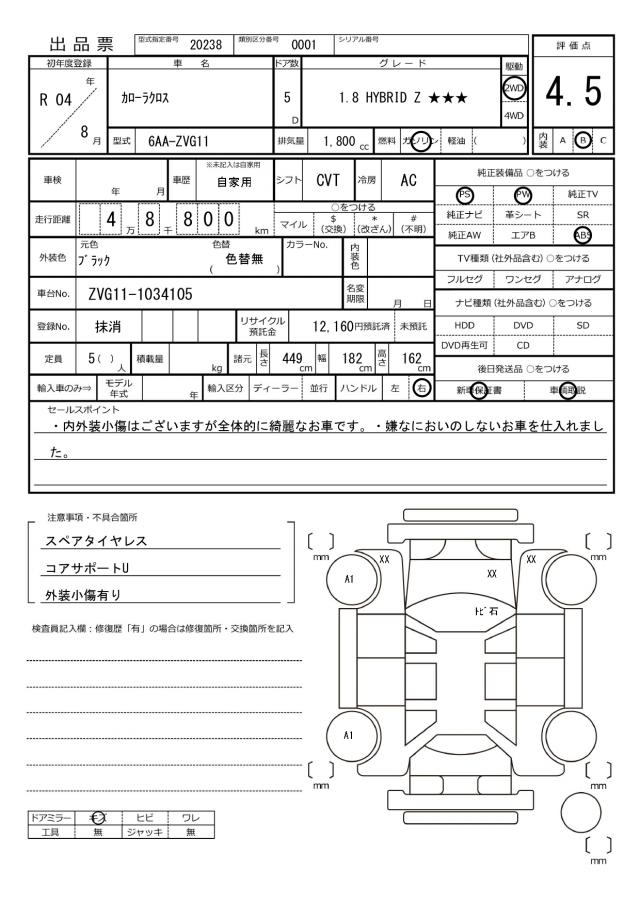 出 品 票
型式指定番号 20238 類別区分番号 0001 シリアル番号
評 価 点
4.5
初年度登録 車 名 ドア数 グ レ ー ド 駆動
R 04 年
8 月
カローラクロス
5 D
1.8 HYBRID Z ★★★
2WD
4WD
型式 6AA-ZVG11 排気量 1,800 cc 燃料 ガソリン 軽油 ( )
内装 A B C
車検 年 月 車歴 ※未記入は自家用 自家用 シフト CVT 冷房 AC
走行距離 4 万 8 千 8 0 0 km
○をつける
マイル $ (交換) * (改ざん) # (不明)
外装色 元色 ブラック 色替 ( 色替無 ) カラーNo. 内装色
車台No. ZVG11-1034105 名変期限 月 日
登録No. 抹消 リサイクル預託金 12,160円預託済 未預託
定員 5( ) 人 積載量 kg 諸元 長さ 449 cm 幅 182 cm 高さ 162 cm
輸入車のみ⇒ モデル年式 年 輸入区分 ディーラー 並行 ハンドル 左 右
純正装備品 ○をつける
PS PW 純正TV
純正ナビ 革シート SR
純正AW エアB ABS
TV種類 (社外品含む) ○をつける
フルセグ ワンセグ アナログ
ナビ種類 (社外品含む) ○をつける
HDD DVD SD
DVD再生可 CD
後日発送品 ○をつける
新車保証書 車輌取説
セールスポイント
・内外装小傷はございますが全体的に綺麗なお車です。・嫌なにおいのしないお車を仕入れまし
た。
注意事項・不具合箇所
スペアタイヤレス
コアサポートU
外装小傷有り
検査員記入欄：修復歴「有」の場合は修復箇所・交換箇所を記入
mm mm
XX XX
A1 XX
トビ石
A1
mm mm
mm
ドアミラー キズ ヒビ ワレ
工具 無 ジャッキ 無